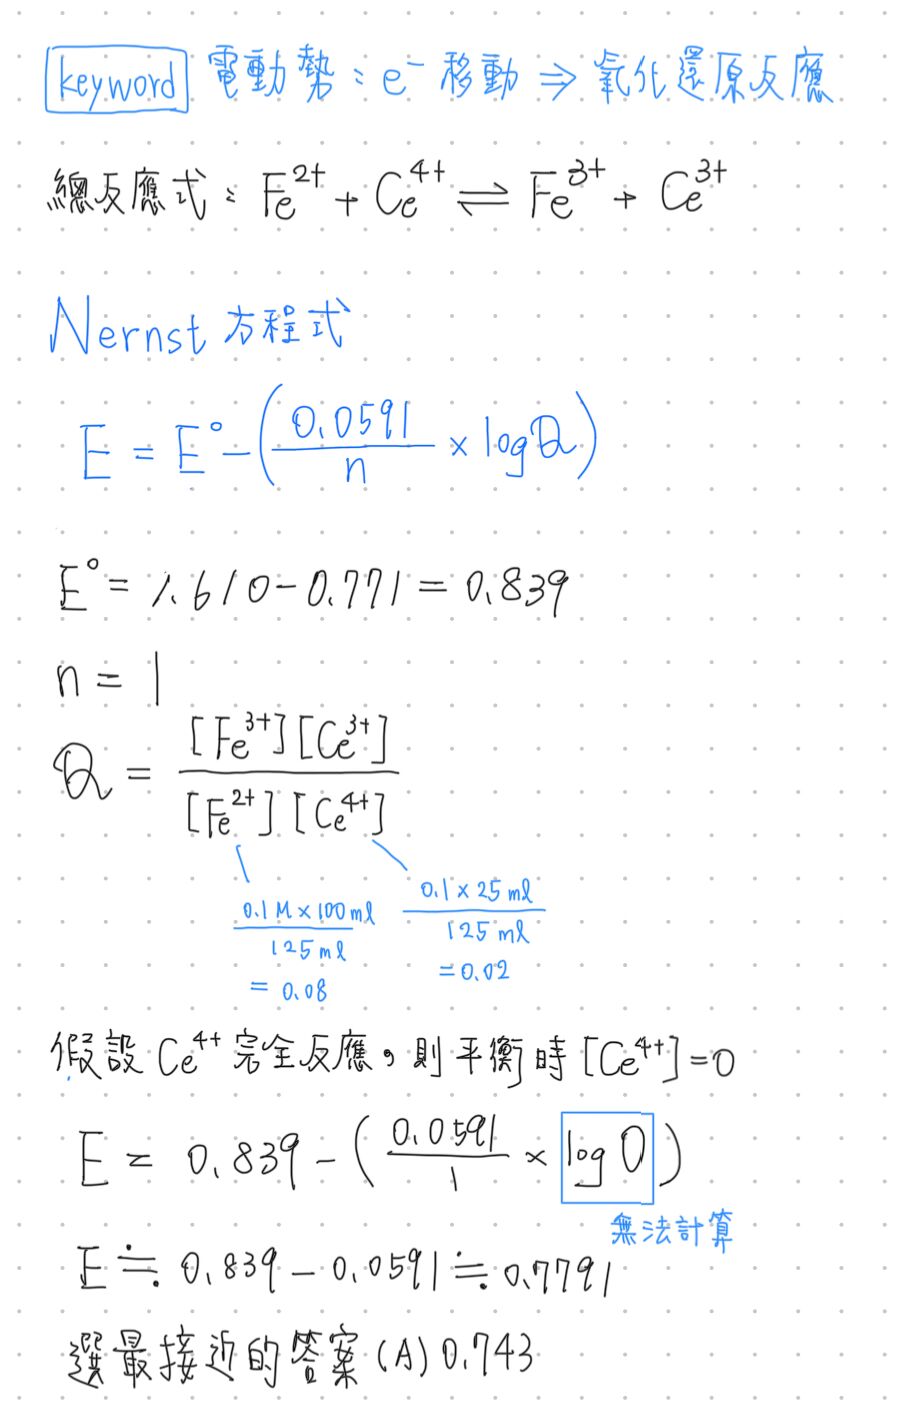 keyword 電動勢：e⁻ 移動 ⇒ 氧化還原反應
總反應式：Fe²⁺ + Ce⁴⁺ ⇌ Fe³⁺ + Ce³⁺
Nernst 方程式
E = E° - (0.0591/n × log Q)
E° = 1.610 - 0.771 = 0.839
n = 1
Q = [Fe³⁺][Ce³⁺] / [Fe²⁺][Ce⁴⁺]
0.1 M × 100 ml / 125 ml = 0.08
0.1 × 25 ml / 125 ml = 0.02
假設 Ce⁴⁺ 完全反應，則平衡時 [Ce⁴⁺] = 0
E = 0.839 - (0.0591/1 × log 0)
無法計算
E ≒ 0.839 - 0.0591 ≒ 0.7791
選最接近的答案 (A) 0.743